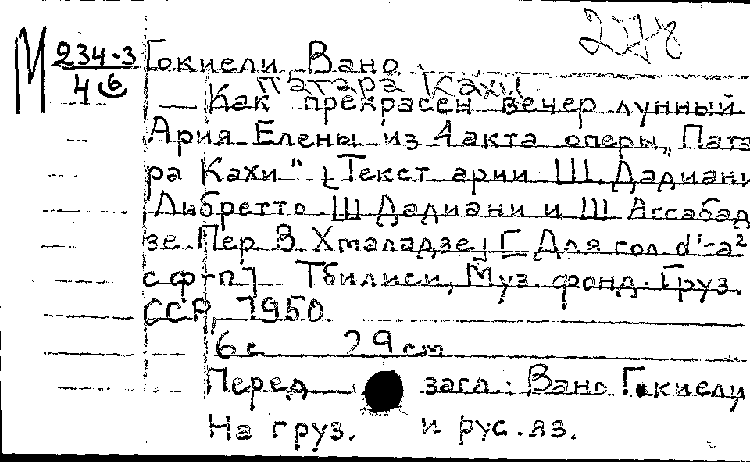 2778
М 234-3
46
Гокиели, Вано.
Патара Кахи
— Как прекрасен вечер лунный
Ария Елены из 4 акта оперы „Пата
ра Кахи" [Текст арии Ш. Дадиани
Либретто Ш Дадиани и Ш Ассабад
зе. Пер В. Хмаладзе] [Для гол d'-a²
с ф-п] Тбилиси, Муз. фонд. Груз.
ССР, 1950.
6 с 29 см
Перед загл.: Вано Гокиели
На груз. и рус. яз.